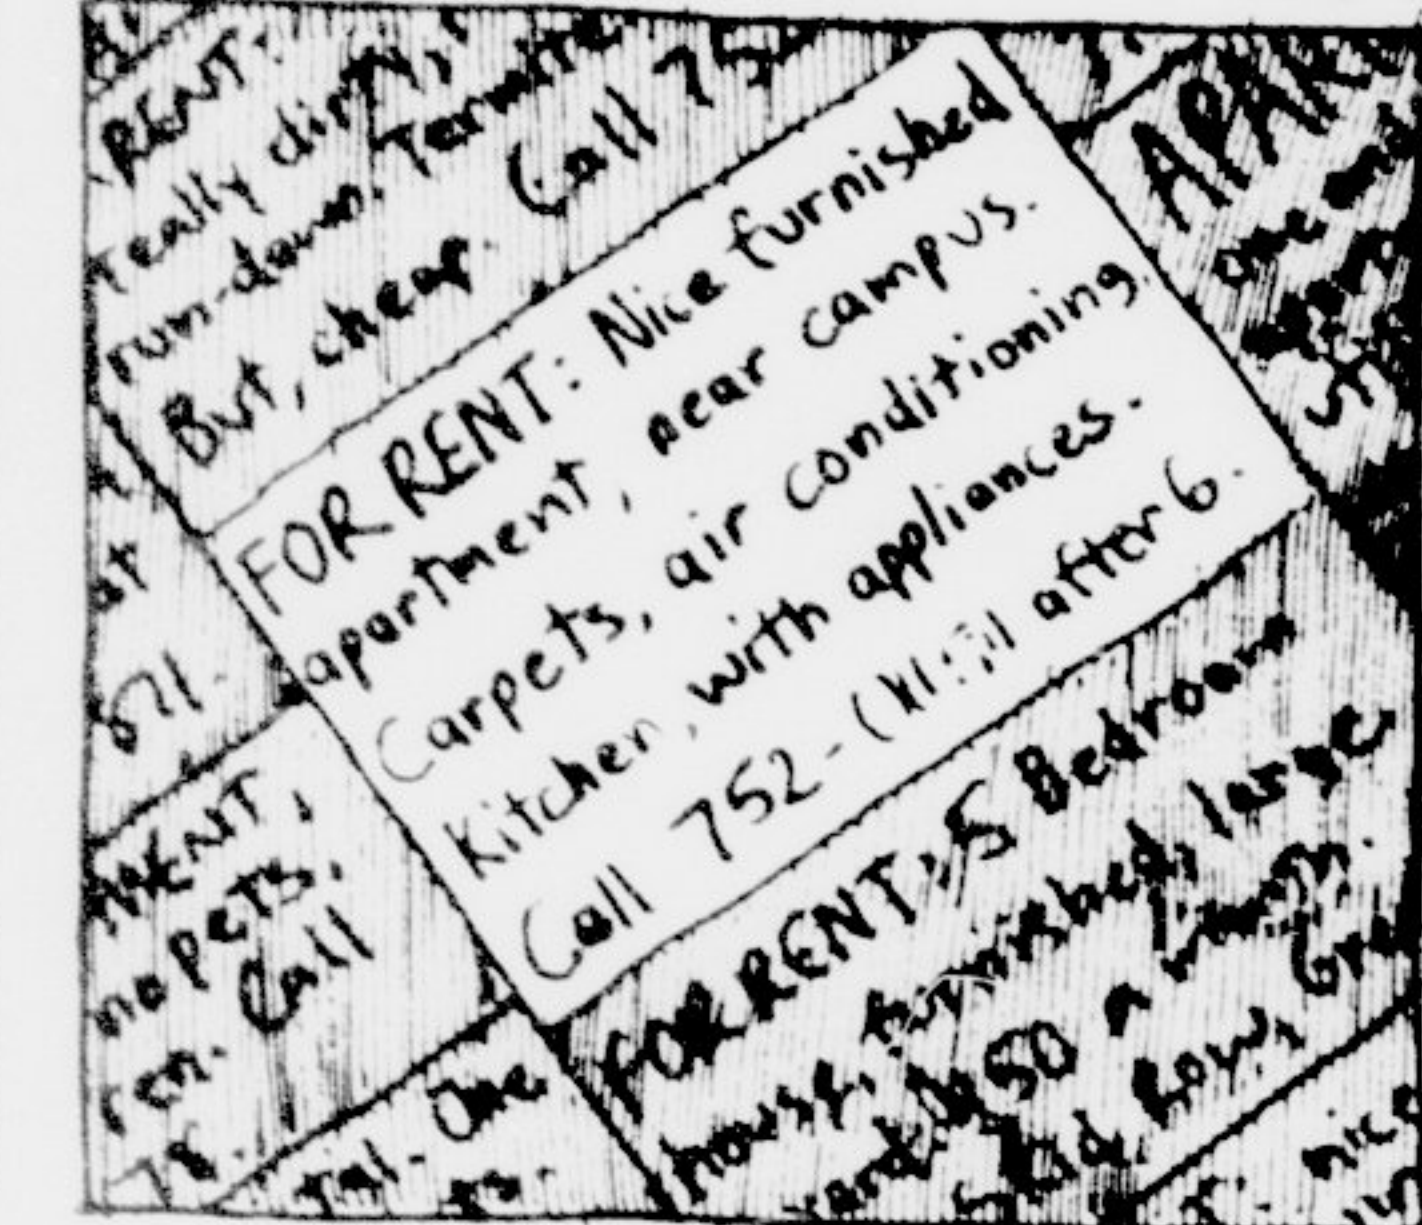 RENT:
really dirty,
run-down. Termite
But, cheap. Call 75
FOR RENT: Nice furnished
apartment, near campus.
Carpets, air conditioning.
Kitchen, with appliances.
Call 752- after 6.
APAR
one and
at
MENT,
no pets,
ren. Call
78.
FOR RENT: 5 Bedroom
house, furnished, large
50 a
Row,
tal. One
nice